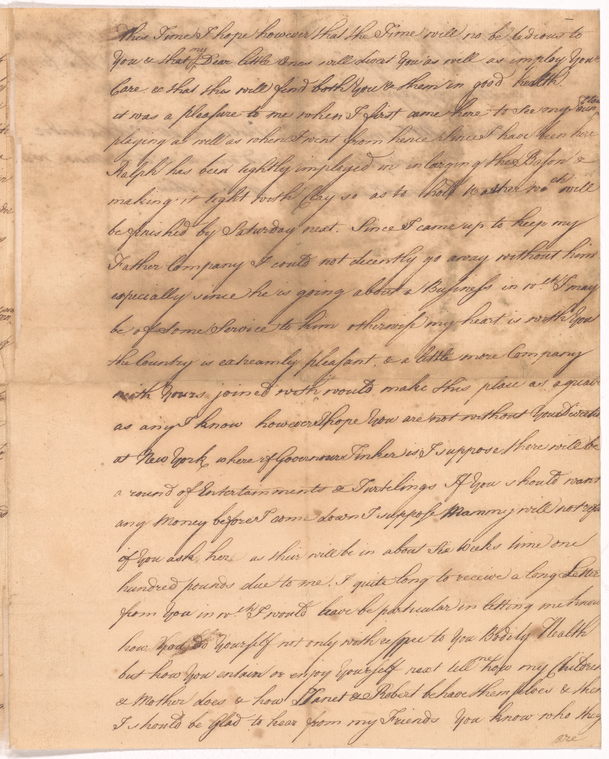 this Time I hope however that the Time will no be tedious to
You & that my Dear little ones will divert You as well as employ Your
Care & that this will find both You & them in good health.
it was a pleasure to me when I first came here to see my
playing as well as when I went from hence since I have been here
Ralph has been tightly imployed in inlarging the Bason &
making it tight with Clay so as to hold Water wch will
be finish'd by Saturday next. Since I came up to keep my
Father Company I could not decently go away without him
especially since he is going about a Business in wch I may
be of some Service to him otherwise my heart is with You
the Country is extreamly pleasant & a little more Company
with Yours joined with would make this place as agreable
as any I know however I hope You are not without Your Diversions
at New York where if Governour Tinker is I suppose there will be
a round of Entertainments & Turtelings If You should want
any Money before I come down I suppose Mammy will not refuse
if You ask her as their will be in about Six Weeks time one
hundred pounds due to me. I quite long to receive a long Letter
from You in wch I would have be particular in letting me know
how You do Yourself not only with respec to You Bodily Health
but how You entain or enjoy Yourself next tell me how my Children
& Mother does & how Janet & Robert behave themselves & then
I should be glad to hear from my Friends You know who they
are